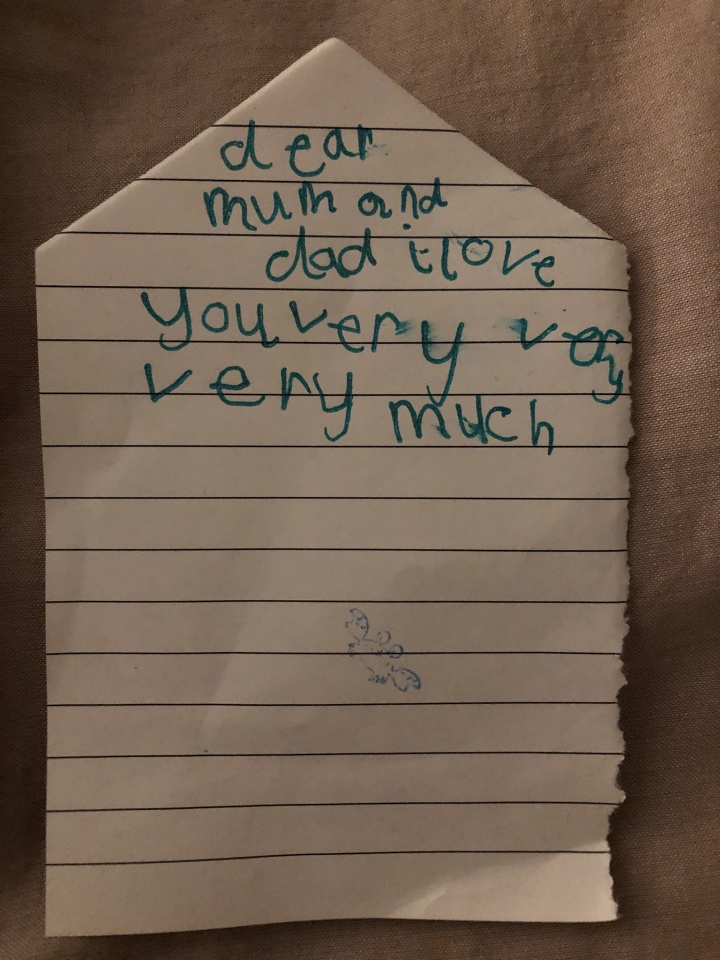 dear
mum and
dad i love
you very very
very much